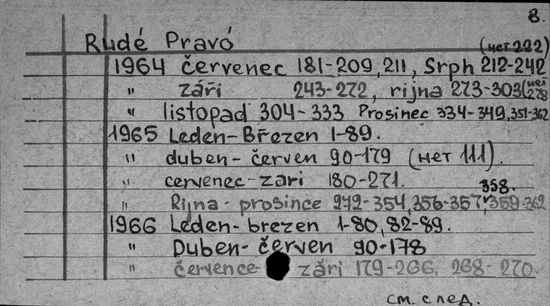 8.
Rudé Pravó
(нет 222)
1964 červenec 181-209, 211, Srph 212-242
" září 243-272, rijna 273-303 (нет 278
" listopad 304-333 Prosinec 334-349, 351-362
1965 Leden-Březen 1-89.
" duben-červen 90-179 (нет 111).
" cervenec-zari 180-271.
358.
" Rijna-prosince 272-354, 356-357, 359-362
1966 Leden-brezen 1-80, 82-89.
" Duben-červen 90-178
" července- září 179-266, 268-270.
см. след.